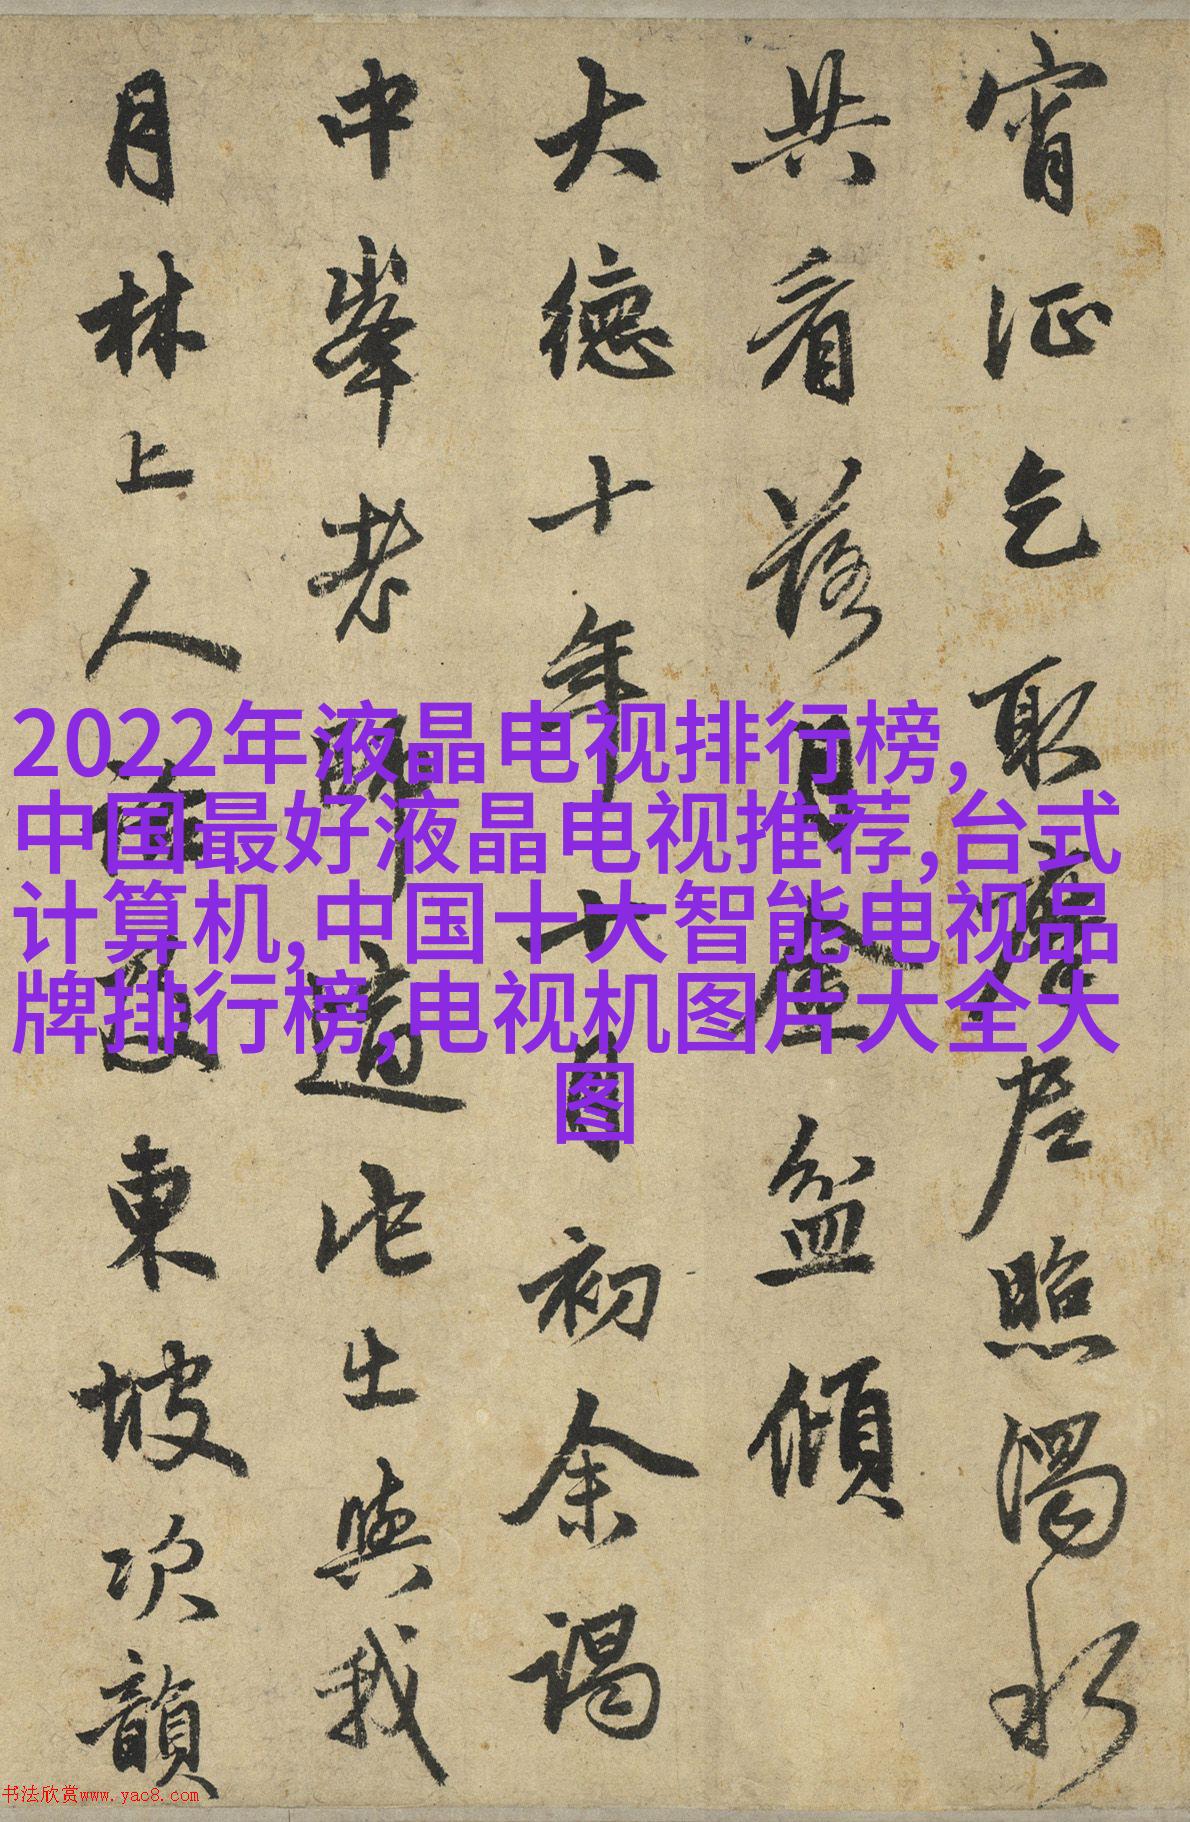 宵征乞取摩尼照濁水
共看落月金盆傾
大德十年十月初余謁
中峯老師適他出與我
月林上人東坡次韻
2022年液晶电视排行榜,
中国最好液晶电视推荐,台式
计算机,中国十大智能电视品
牌排行榜,电视机图片大全大
图
书法欣赏www.yac8.com